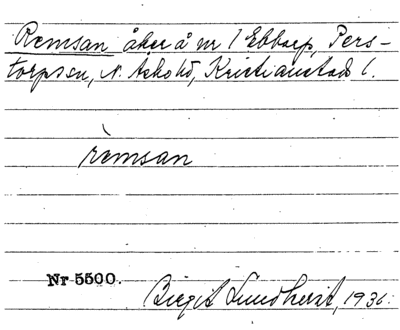 Remsan åker å nr 1 Ebbarp, Pers-
torps sn, N. Åsbo hd, Kristianstads l.
rèmsan
Nr 5500.
Birgit Lundkvist, 1936.